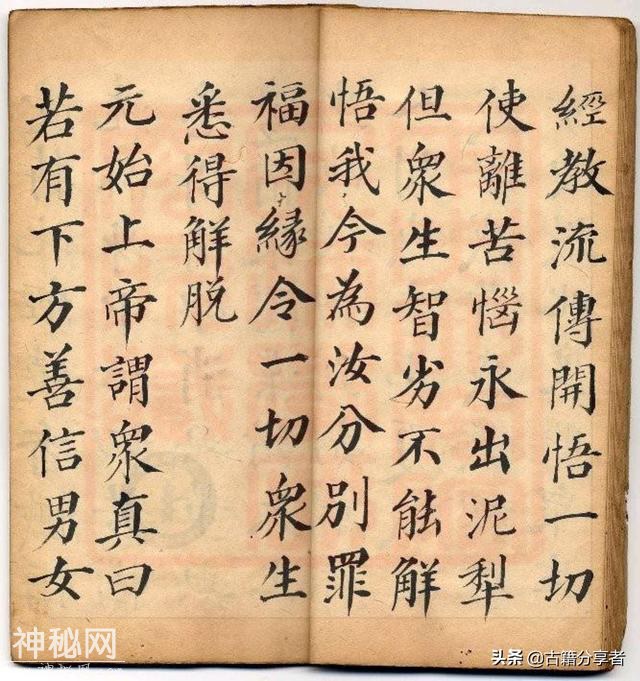 經教流傳開悟一切
使離苦惱永出泥犁
但衆生智劣不能解
悟我今為汝分別罪
福因緣令一切衆生
悉得解脱
元始上帝謂衆真曰
若有下方善信男女
神秘网
头条 @古籍分享者